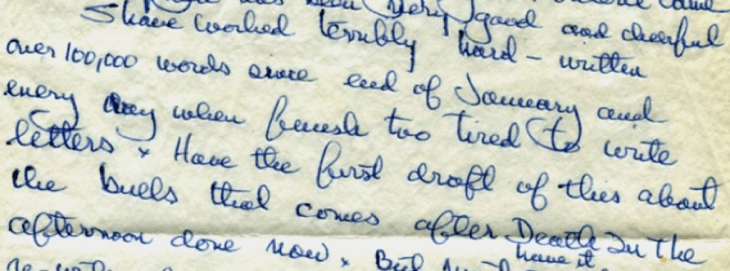 been very good and cheerful
I have worked terribly hard - written
over 100,000 words since end of January and
every day when finish too tired to write
letters x Have the first draft of this about
the bulls that comes after Death In the
afternoon done now x But
have it